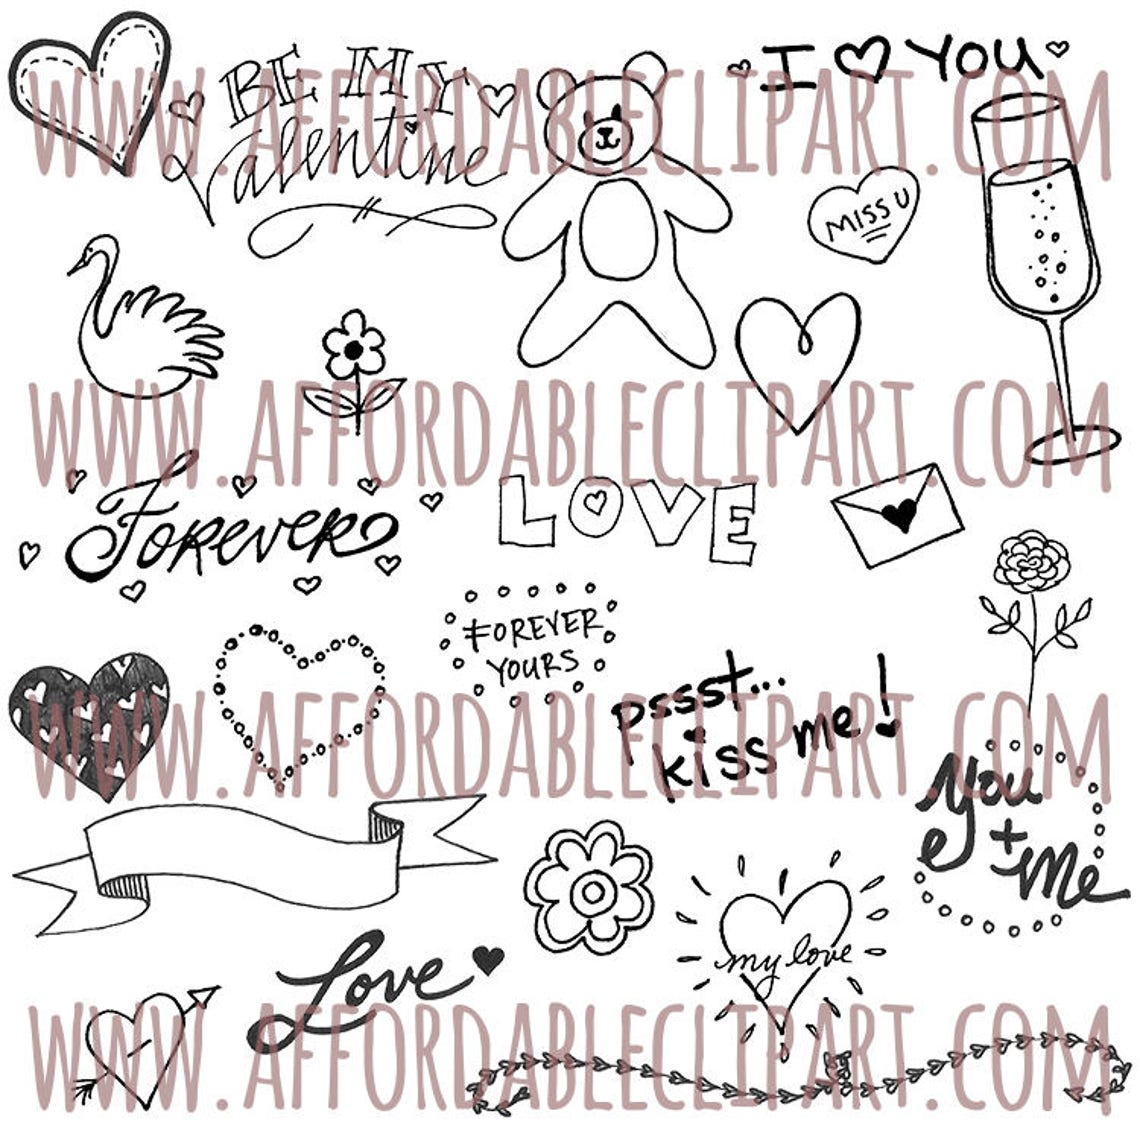 BE MY
Valentine
I YOU
MISS U
WWW.AFFORDABLECLIPART.COM
WWW.AFFORDABLECLIPART.COM
Forever
LOVE
FOREVER
YOURS
pssst...
kiss me!
WWW.AFFORDABLECLIPART.COM
You
+ Me
my love
Love
WWW.AFFORDABLECLIPART.COM